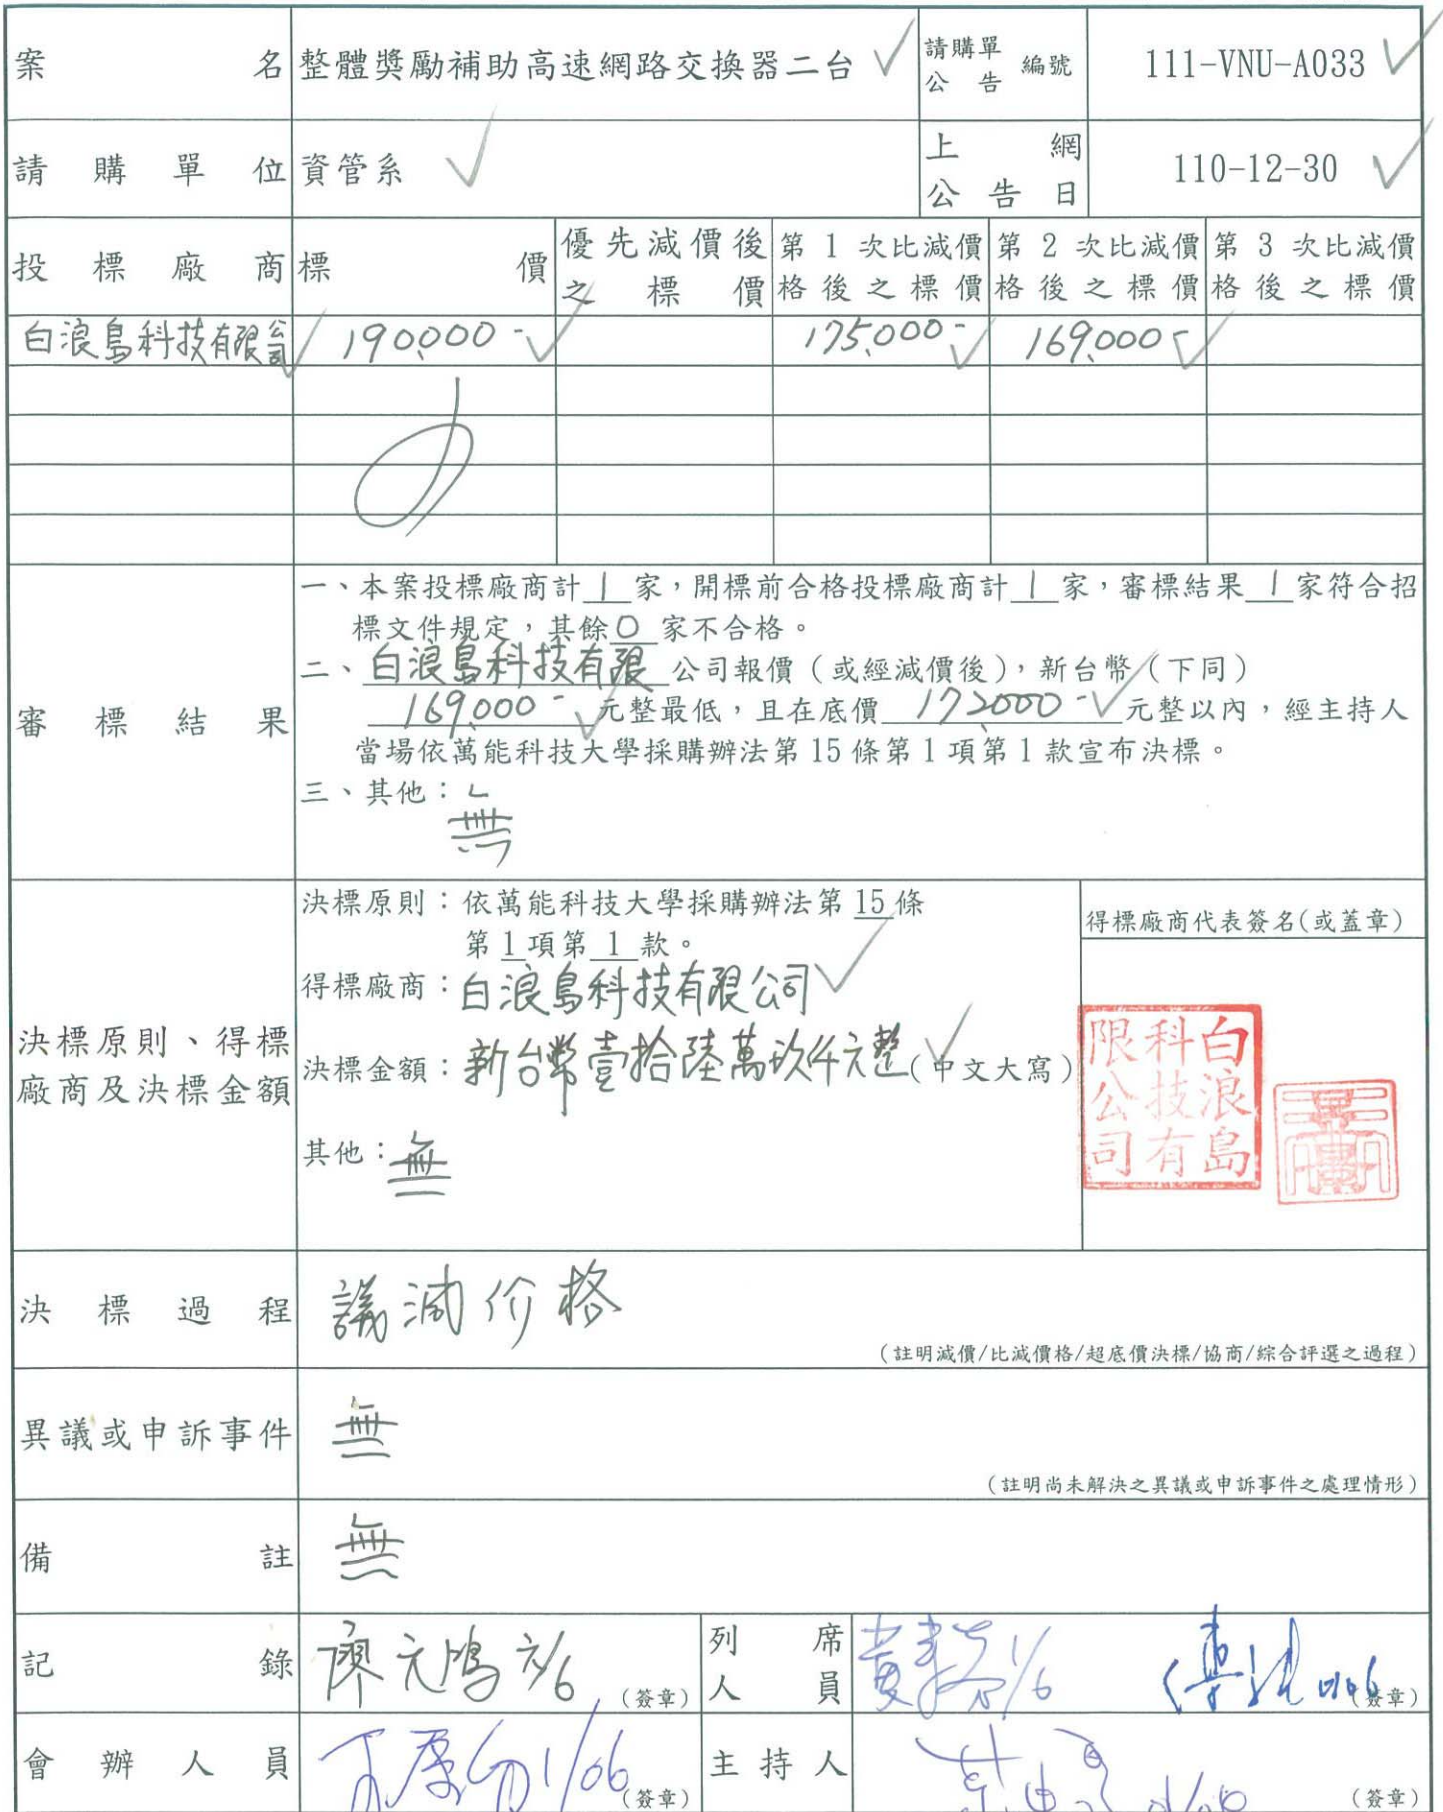 案名 整體獎勵補助高速網路交換器二台 請購單公告 編號 111-VNU-A033
請購單位 資管系 上網公告日 110-12-30
投標廠商 標價 優先減價後之標價 第 1 次比減價格後之標價 第 2 次比減價格後之標價 第 3 次比減價格後之標價
白浪島科技有限公司 190,000- 175,000- 169,000-
審標結果
一、本案投標廠商計 1 家，開標前合格投標廠商計 1 家，審標結果 1 家符合招
標文件規定，其餘 0 家不合格。
二、白浪島科技有限 公司報價（或經減價後），新台幣（下同）
169,000- 元整最低，且在底價 172,000- 元整以內，經主持人
當場依萬能科技大學採購辦法第 15 條第 1 項第 1 款宣布決標。
三、其他：無
決標原則、得標
廠商及決標金額
決標原則：依萬能科技大學採購辦法第 15 條
第 1 項第 1 款。
得標廠商：白浪島科技有限公司
決標金額：新台幣壹拾陸萬玖仟元整(中文大寫)
其他：無
得標廠商代表簽名(或蓋章)
白浪島
科技有
限公司
決標過程 議減价格
（註明減價/比減價格/超底價決標/協商/綜合評選之過程）
異議或申訴事件 無
（註明尚未解決之異議或申訴事件之處理情形）
備註 無
記錄 廖元鴻 元/6 （簽章） 列席人員 1/6 0106 （簽章）
會辦人員 1/06 （簽章） 主持人 （簽章）